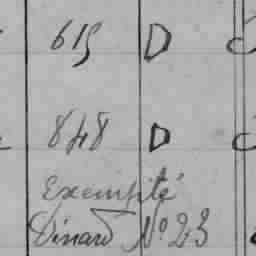 615 D
848 D
Exempté
Dinard No 23